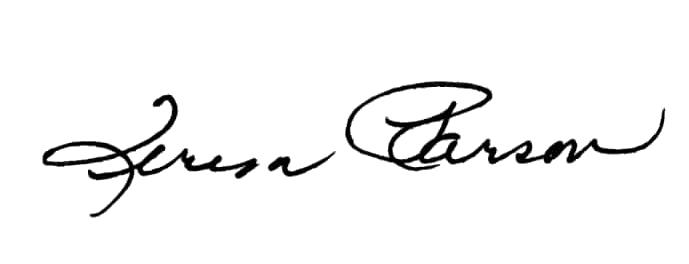 Teresa Parson